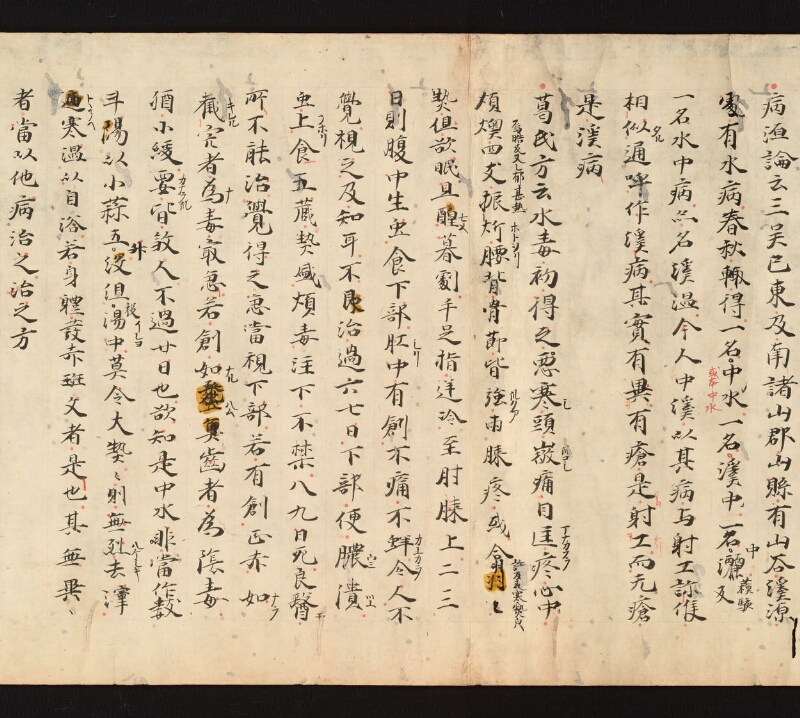 病源論云三吴已東及南諸山郡山縣有山谷溪源
處有水病春秋輙得一名中水一名溪中一名灑又
一名水中病亦名溪温今人中溪以其病与射工診候
相似通呼作溪病其實有異有瘡是射工而无瘡
是溪病
葛氏方云水毒初得之惡寒頭微痛目匡疼心中
煩懊四支振焮腰背骨節皆強兩膝疼或翕翕
熱但欲眠旦醒暮劇手足指逆冷至肘膝上二三
日則腹中生虫食下部肛中有創不痛不蛘令人不
覺視之及知耳不良治過六七日下部便膿潰
虫上食五蔵熱盛煩毒注下不禁八九日死良醫
所不能治覺得之急當視下部若有創正赤如
截完者為毒最急若創如蠡魚齒者為陰毒
猶小緩要皆煞人不過廿日也欲知是中水非當作數
斗湯以小蒜五升㕮咀湯中莫令大熱〻則無烈去滓
適寒温以自浴若身體發赤斑文者是也其無異〻
者當以他病治之治之方